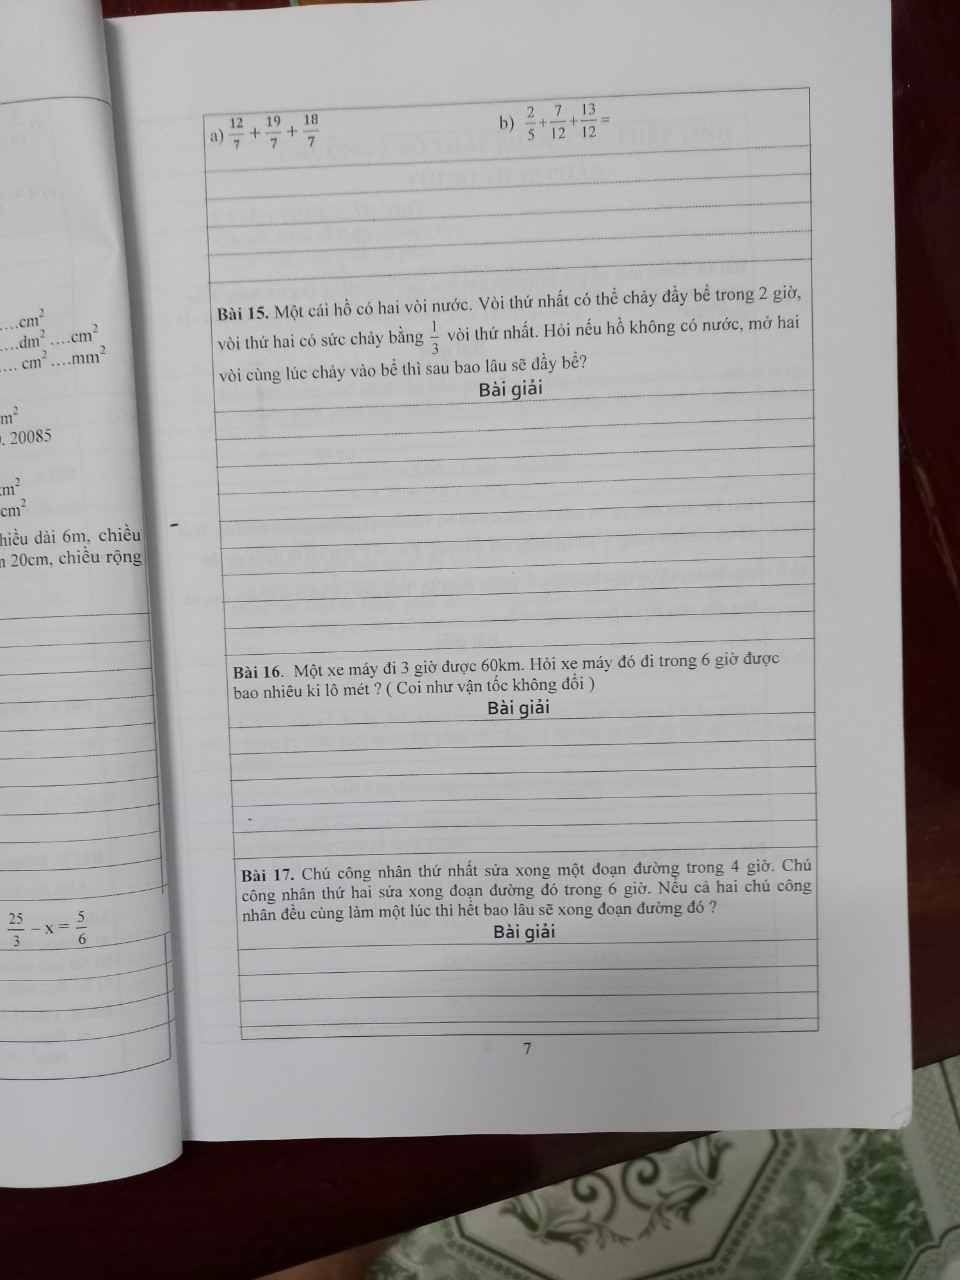 ….cm²
….dm² ….cm²
…. cm² ….mm²
m²
. 20085
m²
cm²
hiều dài 6m, chiều
20cm, chiều rộng
25/3 – x = 5/6
a) 12/7 + 19/7 + 18/7
b) 2/5 + 7/12 + 13/12 =
Bài 15. Một cái hồ có hai vòi nước. Vòi thứ nhất có thể chảy đầy bể trong 2 giờ,
vòi thứ hai có sức chảy bằng 1/3 vòi thứ nhất. Hỏi nếu hồ không có nước, mở hai
vòi cùng lúc chảy vào bể thì sau bao lâu sẽ đầy bể?
Bài giải
Bài 16. Một xe máy đi 3 giờ được 60km. Hỏi xe máy đó đi trong 6 giờ được
bao nhiêu ki lô mét ? ( Coi như vận tốc không đổi )
Bài giải
Bài 17. Chú công nhân thứ nhất sửa xong một đoạn đường trong 4 giờ. Chú
công nhân thứ hai sửa xong đoạn đường đó trong 6 giờ. Nếu cả hai chú công
nhân đều cùng làm một lúc thì hết bao lâu sẽ xong đoạn đường đó ?
Bài giải
7